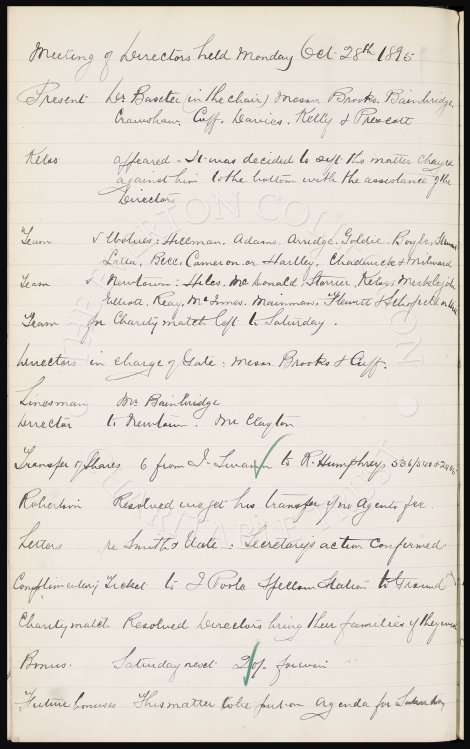 Meeting of Directors held Monday Oct 28th 1895
Present Dr Baxter (in the chair) Messrs Brooks, Bainbridge,
Crawshaw, Cuff, Davies, Kelly & Prescott
Kelso appeared - It was decided to sift the matter charged
against him to the bottom with the assistance of the
Directors
Team v Wolves: Hillman, Adams, Arridge, Goldie, Boyle, Stewart
Latta, Bell, Cameron or Hartley, Chadwick & Milward
Team v Newtown: Hiles, McDonald, Storrier, Kelso, Meiklejohn
Elliott, Reay, McInnes, Mainman, Flewitt & Schofield or
Team for Charity match left to Saturday.
Directors in charge of Gate: Messrs Brooks & Cuff.
Linesman Mr Bainbridge
Director to Newtown. Mr Clayton
Transfer of Shares 6 from J. to R. Humphreys
Robertson Resolved we get his transfer if no Agents fee.
Letters re Smith & Tate: Secretary's action confirmed
Complimentary Ticket to J Poole Spellow Station to Ground
Charity match Resolved Directors bring their families if they
Bonus. Saturday next 20/- for win
Future bonuses This matter to be put on Agenda for Saturday
THE EVERTON COLLECTION
CHARITABLE TRUST